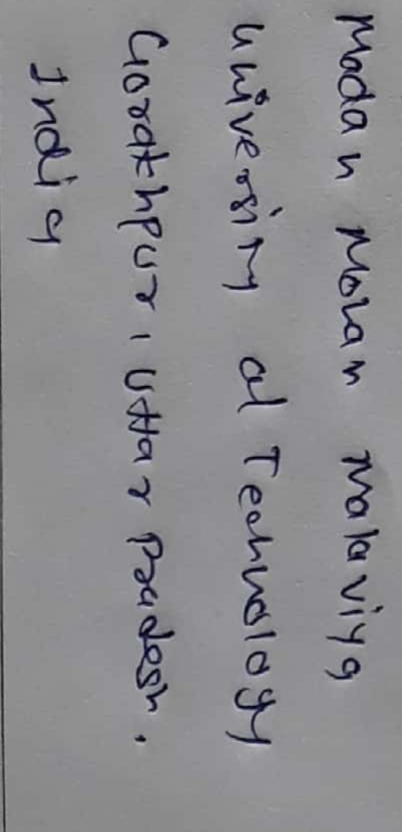 Madan Mohan Malaviya
University of Technology
Gorakhpur, Uttar Pradesh.
India